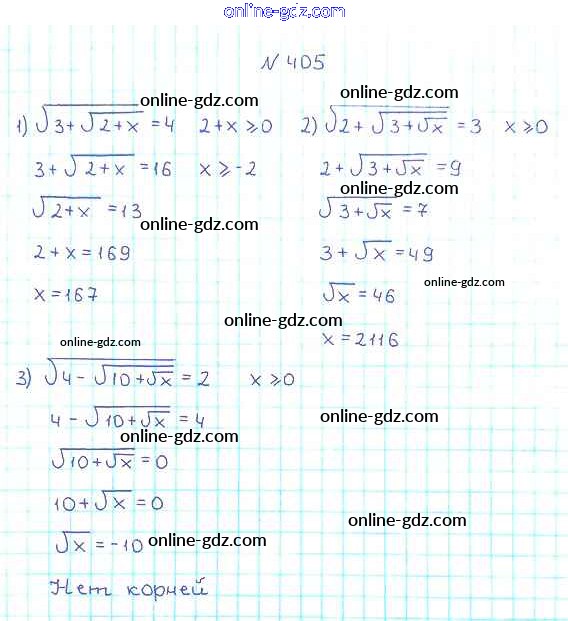 online-gdz.com
N 405
online-gdz.com
1) √(3+√(2+x)) = 4 2+x ≥ 0
3+√(2+x) = 16 x ≥ -2
√(2+x) = 13
online-gdz.com
2+x = 169
x = 167
online-gdz.com
2) √(2+√(3+√x)) = 3 x ≥ 0
2+√(3+√x) = 9
online-gdz.com
√(3+√x) = 7
3+√x = 49
online-gdz.com
√x = 46
online-gdz.com
x = 2116
online-gdz.com
3) √(4-√(10+√x)) = 2 x ≥ 0
4-√(10+√x) = 4
online-gdz.com
online-gdz.com
√(10+√x) = 0
10+√x = 0
online-gdz.com
√x = -10
online-gdz.com
Нет корней